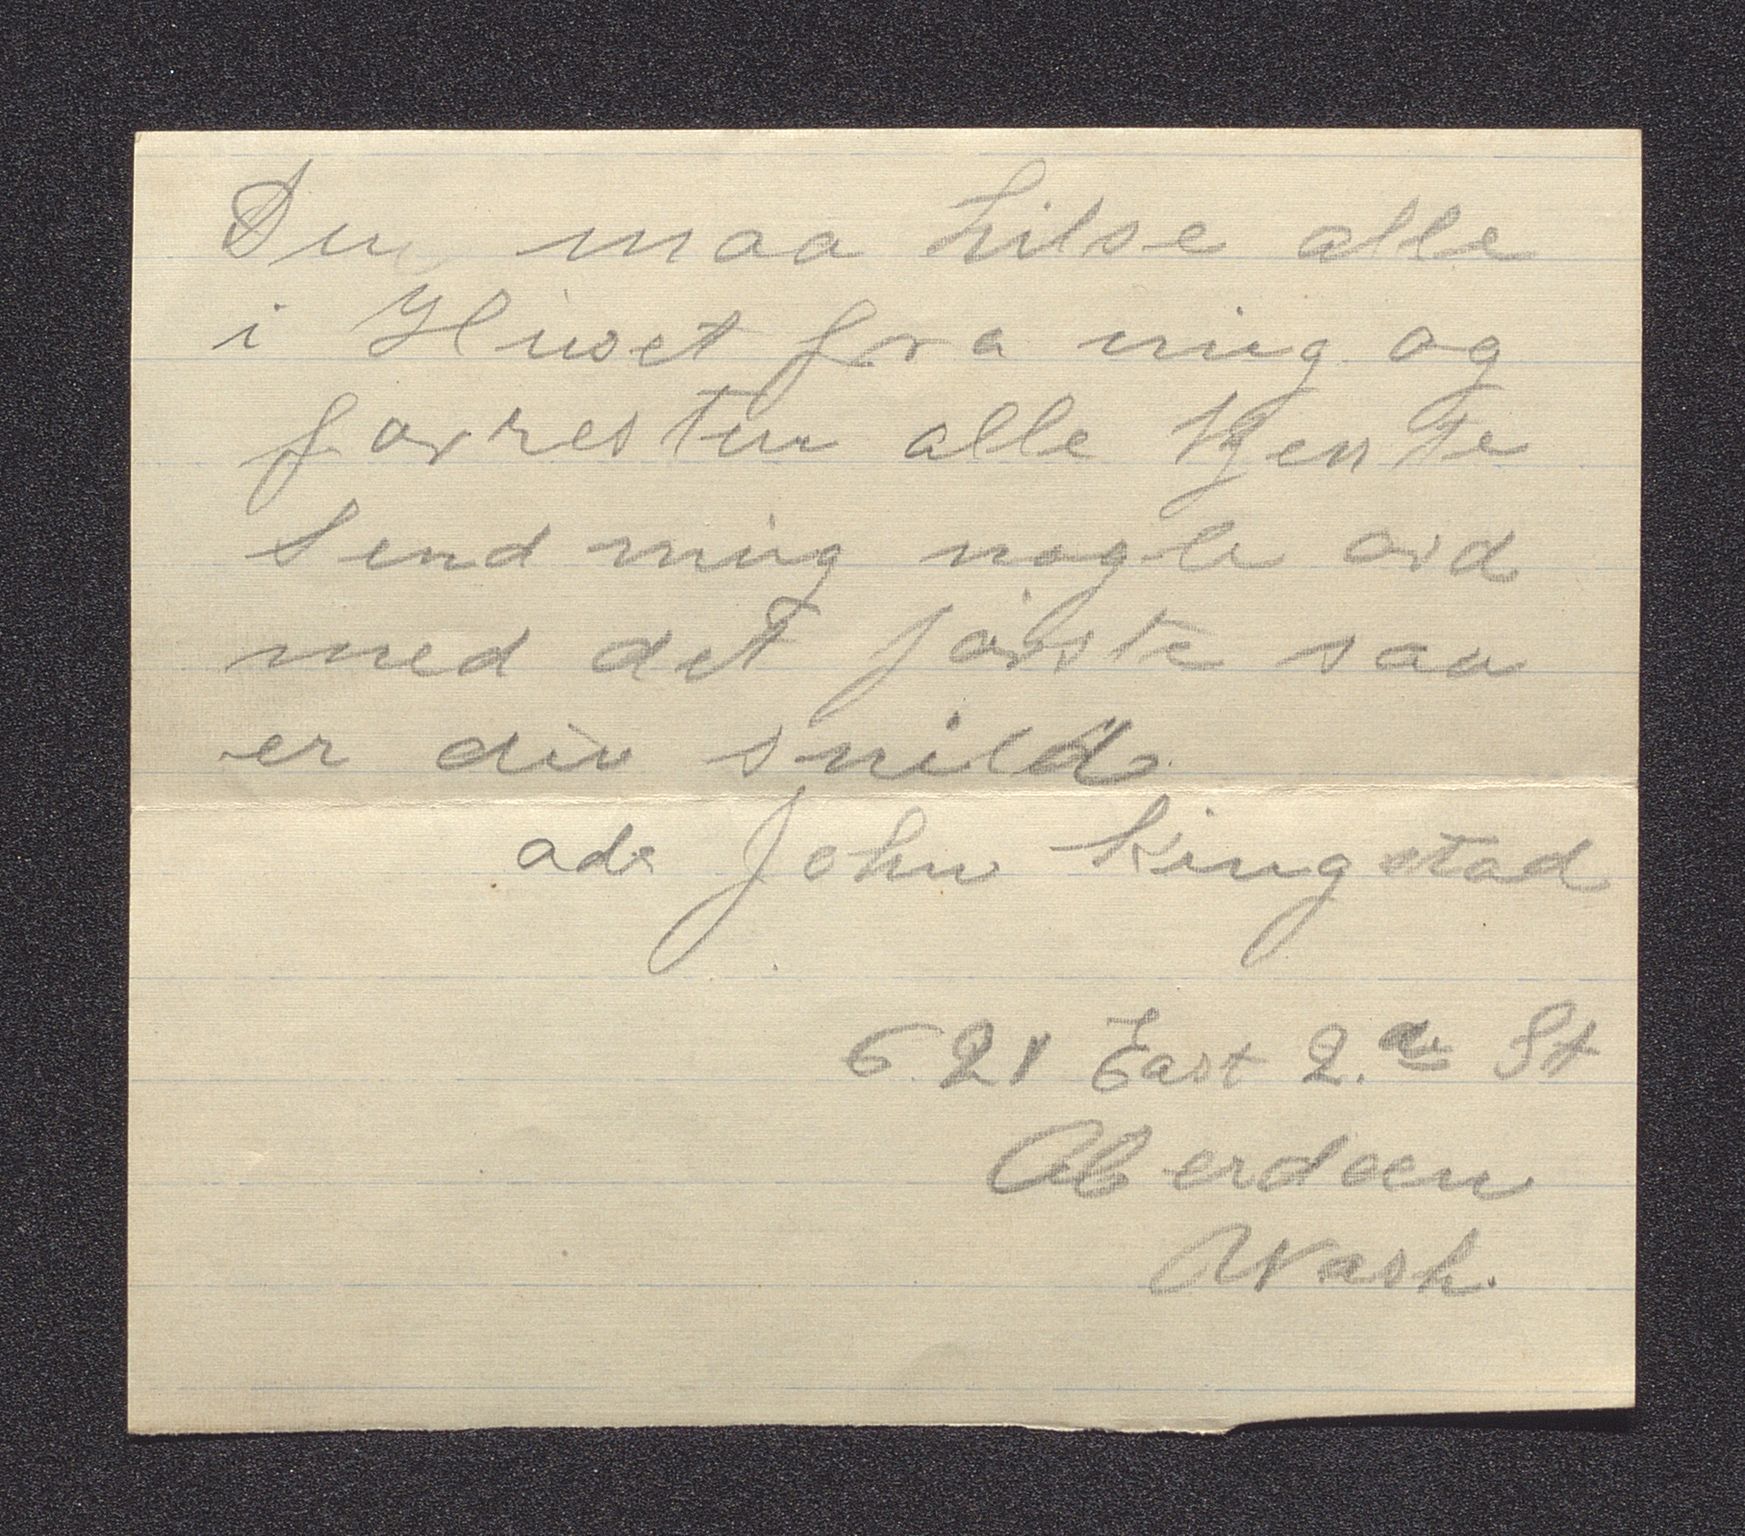 Du maa hilse alle
i Huset fra mig og
forresten alle kjente
Send mig nogle ord
med det förste saa
er du snild
ads John Kingstad
621 East 2. St
Aberdeen
Wash.